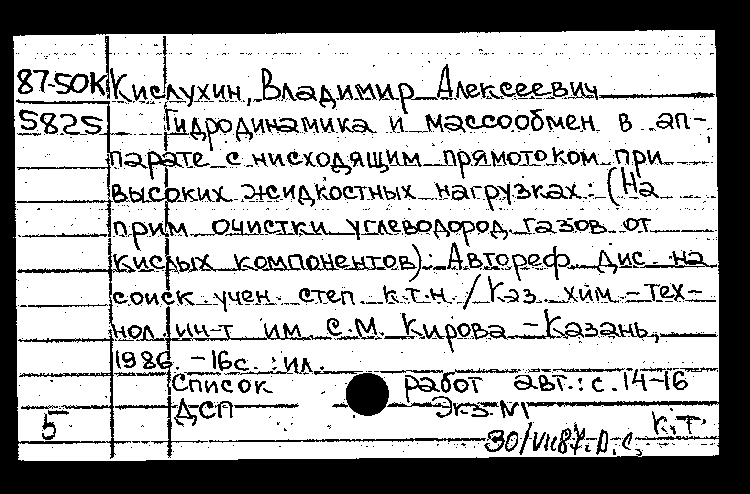 87-50К Кислухин, Владимир Алексеевич
5825 Гидродинамика и массообмен в ап-
парате с нисходящим прямотоком при
высоких жидкостных нагрузках: (На
прим. очистки углеводород. газов от
кислых компонентов): Автореф. дис. на
соиск. учен. степ. к.т.н. / Каз. хим.-тех-
нол. ин-т им. С.М. Кирова. - Казань,
1986. - 16с. : ил.
Список работ авт.: с. 14-16
ДСП Экз. №1
5 К.Т.
30/VII87. Д.С.